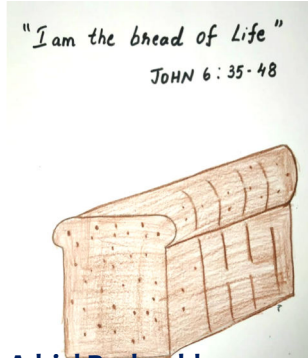 "I am the bread of Life"
JOHN 6:35-48